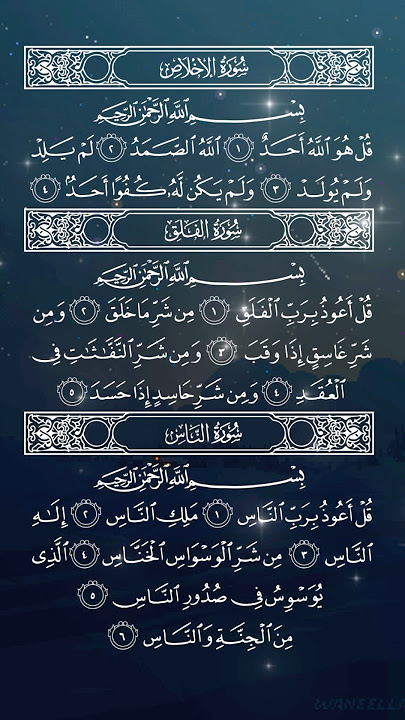 سُورَةُ الإِخْلَاصِ
بِسْمِ ٱللَّهِ ٱلرَّحْمَٰنِ ٱلرَّحِيمِ
قُلْ هُوَ ٱللَّهُ أَحَدٌ ١ ٱللَّهُ ٱلصَّمَدُ ٢ لَمْ يَلِدْ
وَلَمْ يُولَدْ ٣ وَلَمْ يَكُن لَّهُۥ كُفُوًا أَحَدٌۢ ٤
سُورَةُ الفَلَقِ
بِسْمِ ٱللَّهِ ٱلرَّحْمَٰنِ ٱلرَّحِيمِ
قُلْ أَعُوذُ بِرَبِّ ٱلْفَلَقِ ١ مِن شَرِّ مَا خَلَقَ ٢ وَمِن
شَرِّ غَاسِقٍ إِذَا وَقَبَ ٣ وَمِن شَرِّ ٱلنَّفَّٰثَٰتِ فِى
ٱلْعُقَدِ ٤ وَمِن شَرِّ حَاسِدٍ إِذَا حَسَدَ ٥
سُورَةُ النَّاسِ
بِسْمِ ٱللَّهِ ٱلرَّحْمَٰنِ ٱلرَّحِيمِ
قُلْ أَعُوذُ بِرَبِّ ٱلنَّاسِ ١ مَلِكِ ٱلنَّاسِ ٢ إِلَٰهِ
ٱلنَّاسِ ٣ مِن شَرِّ ٱلْوَسْوَاسِ ٱلْخَنَّاسِ ٤ ٱلَّذِى
يُوَسْوِسُ فِى صُدُورِ ٱلنَّاسِ ٥
مِنَ ٱلْجِنَّةِ وَٱلنَّاسِ ٦
WANEELLI